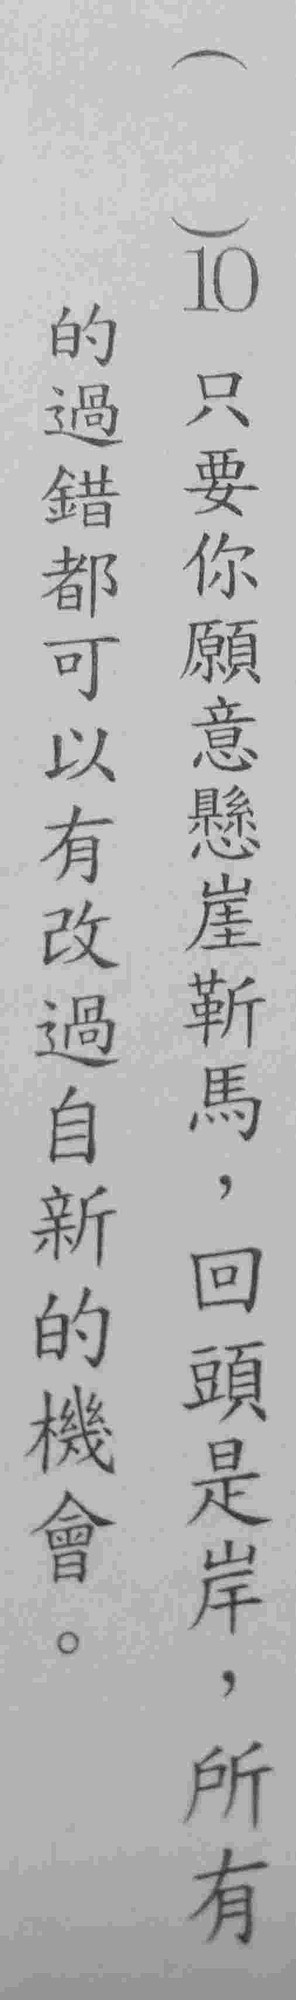 （　）10 只要你願意懸崖靳馬，回頭是岸，所有
的過錯都可以有改過自新的機會。